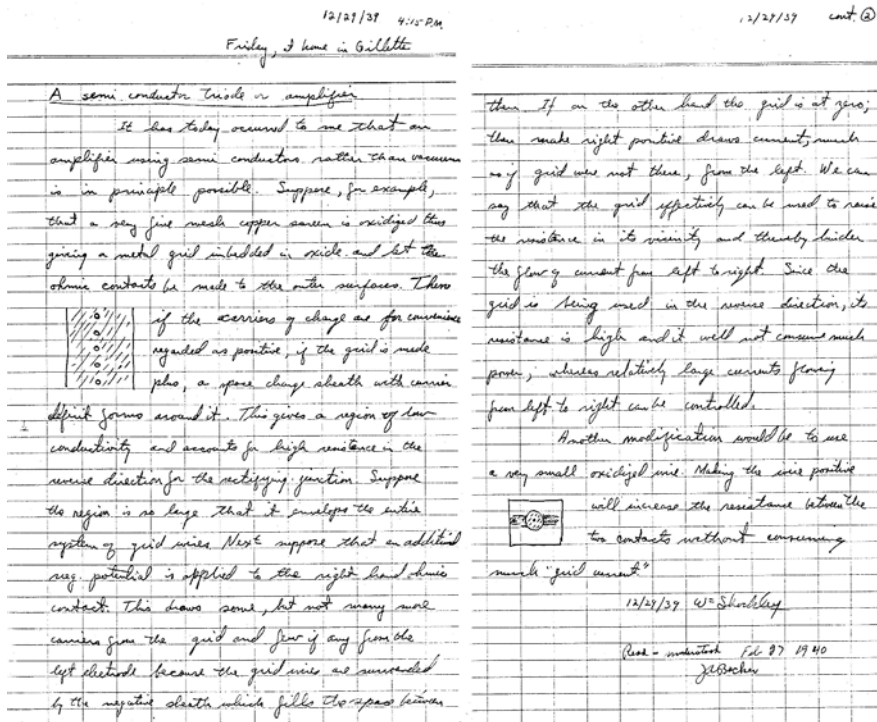 12/29/39 4:15 P.M.
Friday, at home in Gillette
A semi conductor triode or amplifier
It has today occurred to me that an
amplifier using semi conductors rather than vacuum
is in principle possible. Suppose, for example,
that a very fine mesh copper screen is oxidized thus
giving a metal grid imbedded in oxide and let
ohmic contacts be made to the outer surfaces. Then
if the carriers of charge are for convenience
regarded as positive, if the grid is made
plus, a space charge sheath with carrier
deficit forms around it. This gives a region of low
conductivity and accounts for high resistance in the
reverse direction for the rectifying junction. Suppose
the region is so large that it envelops the entire
system of grid wires. Next suppose that an additional
neg. potential is applied to the right hand ohmic
contact. This draws some, but not many more
carriers from the grid and few if any from the
left electrode because the grid wires are surrounded
by the negative sheath which fills the space between
12/29/39 cont. ②
them If on the other hand the grid is at zero;
then make right positive draws current, much
as if grid were not there, from the left. We can
say that the grid effectively can be used to raise
the resistance in its vicinity and thereby hinder
the flow of current from left to right. Since the
grid is being used in the reverse direction, its
resistance is high and it will not consume much
power; whereas relatively large currents flowing
from left to right can be controlled.
Another modification would be to use
a very small oxidized wire. Making the wire positive
will increase the resistance between the
two contacts without consuming
much "grid current"
12/29/39 Wm Shockley
Read - understood Feb 27 1940
J A Becker